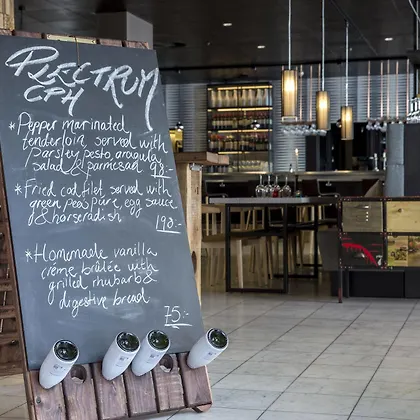 PLECTRUM
CPH
*Pepper marinated
tenderloin served with
parsley pesto, arugula
salad & parmesan 98.-
*Fried cod filet served with
green pea purè, egg sauce
& horseradish 198.-
*Homemade vanilla
crème brûlée with
grilled rhubarb &
digestive bread
75.-